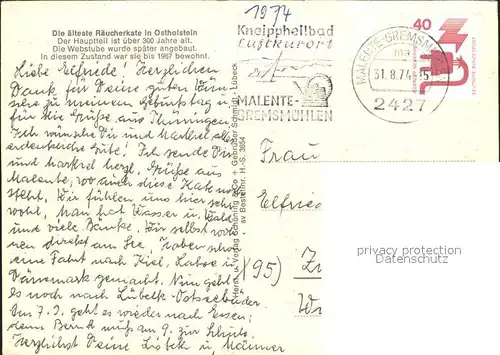 1974
Die älteste Räucherkate in Ostholstein
Der Hauptteil ist über 300 Jahre alt.
Die Webstube wurde später angebaut.
In diesem Zustand war sie bis 1967 bewohnt.
Kneippheilbad
Luftkurort
MALENTE-
GREMSMÜHLEN
MALENTE-GREMSMÜHLEN
31.8.74-15
2427
40
Liebe Elfriede! Herzlichen
Dank für Deine guten Wün
sche zu meinem Geburtstag u.
für die Grüße aus Thüringen.
Ich wünsche Dir und
alles
Gute! Ich sende Dir
und herzl. Grüße aus
Malente, wo auch diese Kate
steht. Wir fühlen uns hier sehr
wohl. Man hat Wasser u. Wald
und viele Bänke. Wir selbst woh
nen direkt am See. Haben schon
eine Fahrt nach Kiel, Laboe u.
Dänemark gemacht. Nun geht
es noch nach Lübeck-Ostseebäder.
Am 7.9. geht es wieder nach Essen,
denn Bernd muß am 9. zur Schule.
Herzlichst Deine u. Männer
Horst u. Verlag Schöning & Co + Gebrüder Schmidt, Lübeck
sv Bestellnr. H.-S. 3854
Frau
Elfried
(95)
privat copyright
copyrighted material